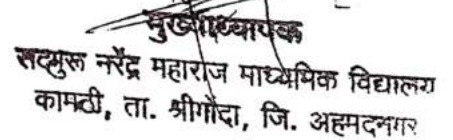 मुख्याध्यापक
सद्गुरू नरेंद्र महाराज माध्यमिक विद्यालय
कामठी, ता. श्रीगोंदा, जि. अहमदनगर